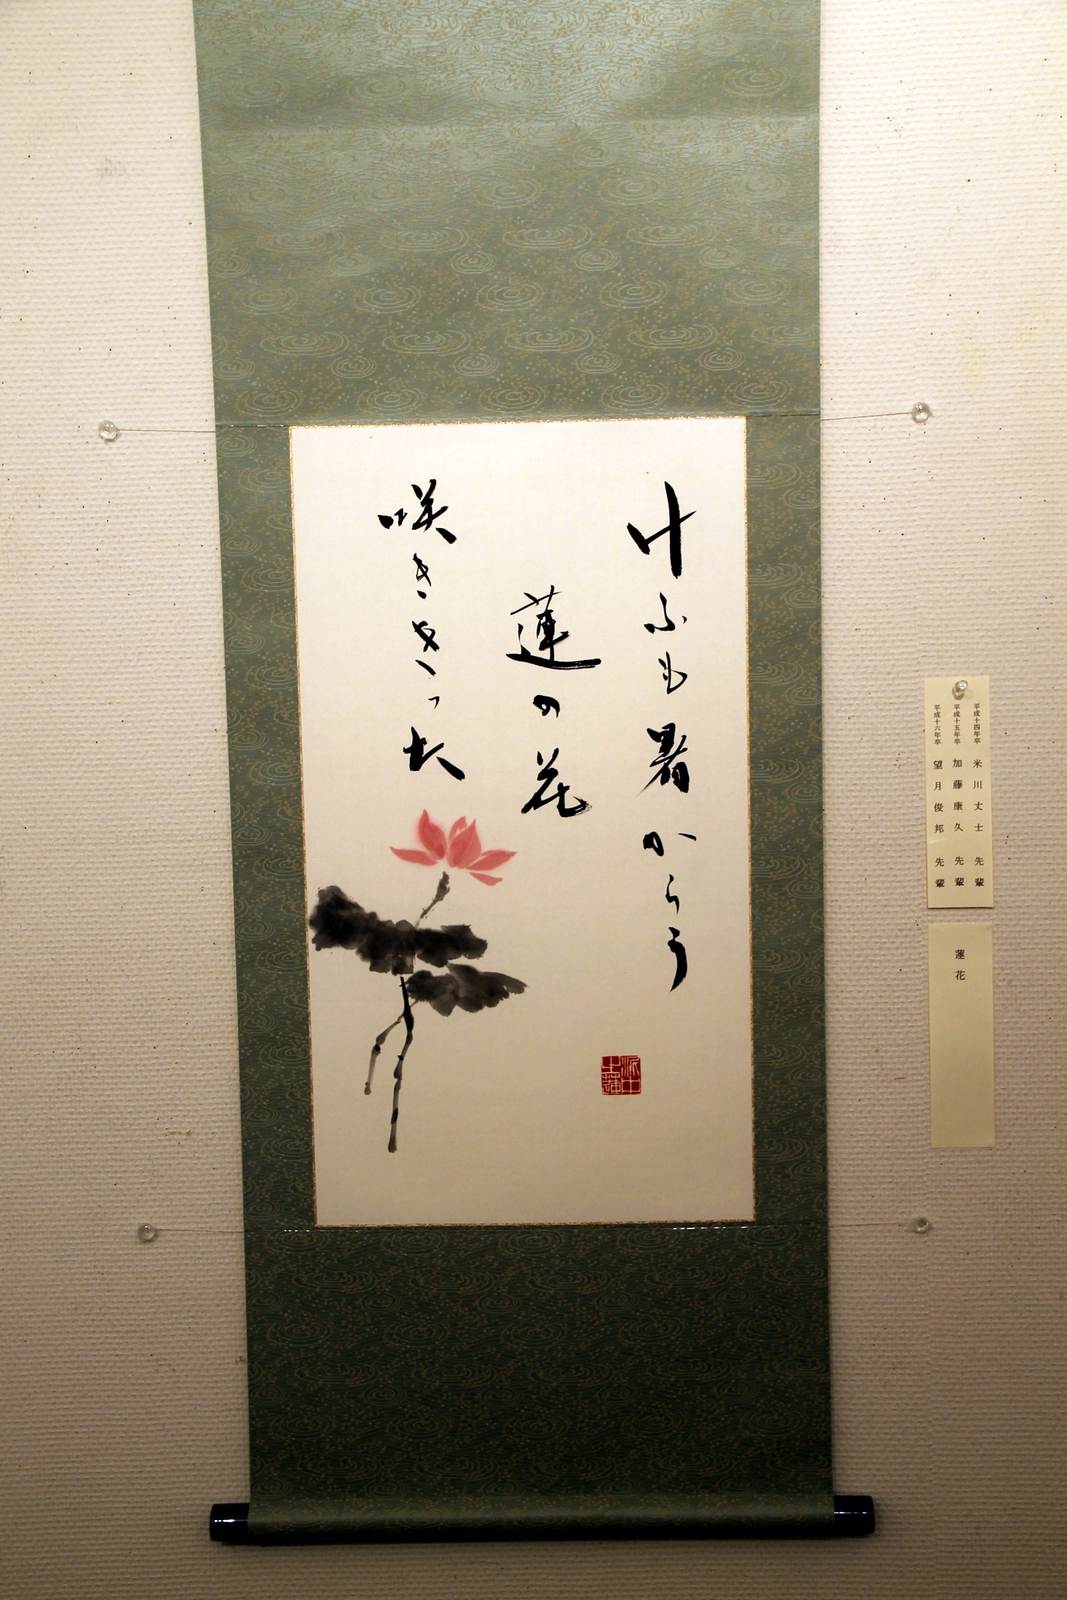 けふも暑からう
蓮の花
咲ききった
平成十四年卒 米川丈士 先輩
平成十五年卒 加藤康久 先輩
平成十六年卒 望月俊邦 先輩
蓮花